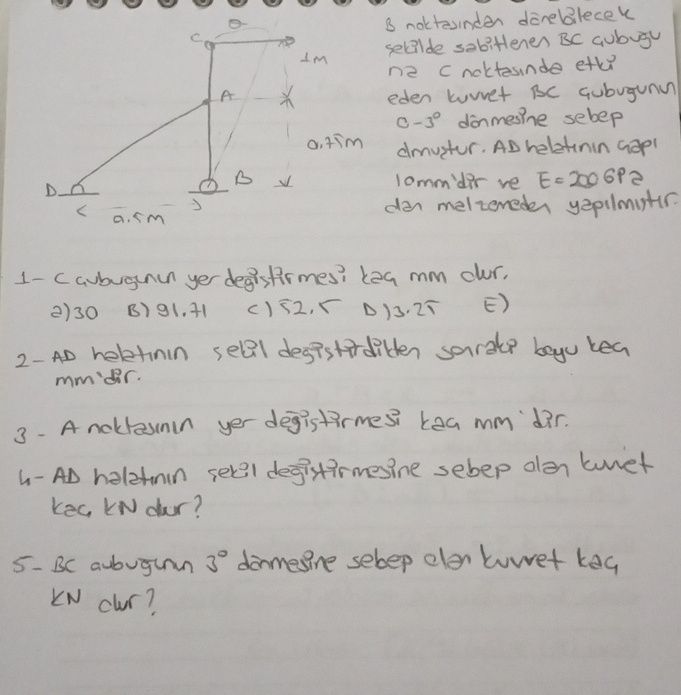 B noktasından dönebilecek
şekilde sabitlenen BC çubuğu
na C noktasında etki
eden kuvvet BC çubuğunun
θ-3° dönmesine sebep
olmuştur. AD halatının çapı
10mm'dir ve E=200GPa
dan malzemeden yapılmıştır.
θ
C
1m
A
0,75m
D
B
0.5m
1- C çubuğunun yer değiştirmesi kaç mm olur.
a)30 B)91.71 C)52,5 D)3.25 E)
2- AD halatının şekil değiştirdikten sonraki boyu kaç
mm'dir.
3- A noktasının yer değiştirmesi kaç mm'dir.
4- AD halatının şekil değiştirmesine sebep olan kuvvet
kaç kN dur?
5- BC çubuğunun 3° dönmesine sebep olan kuvvet kaç
KN dur?